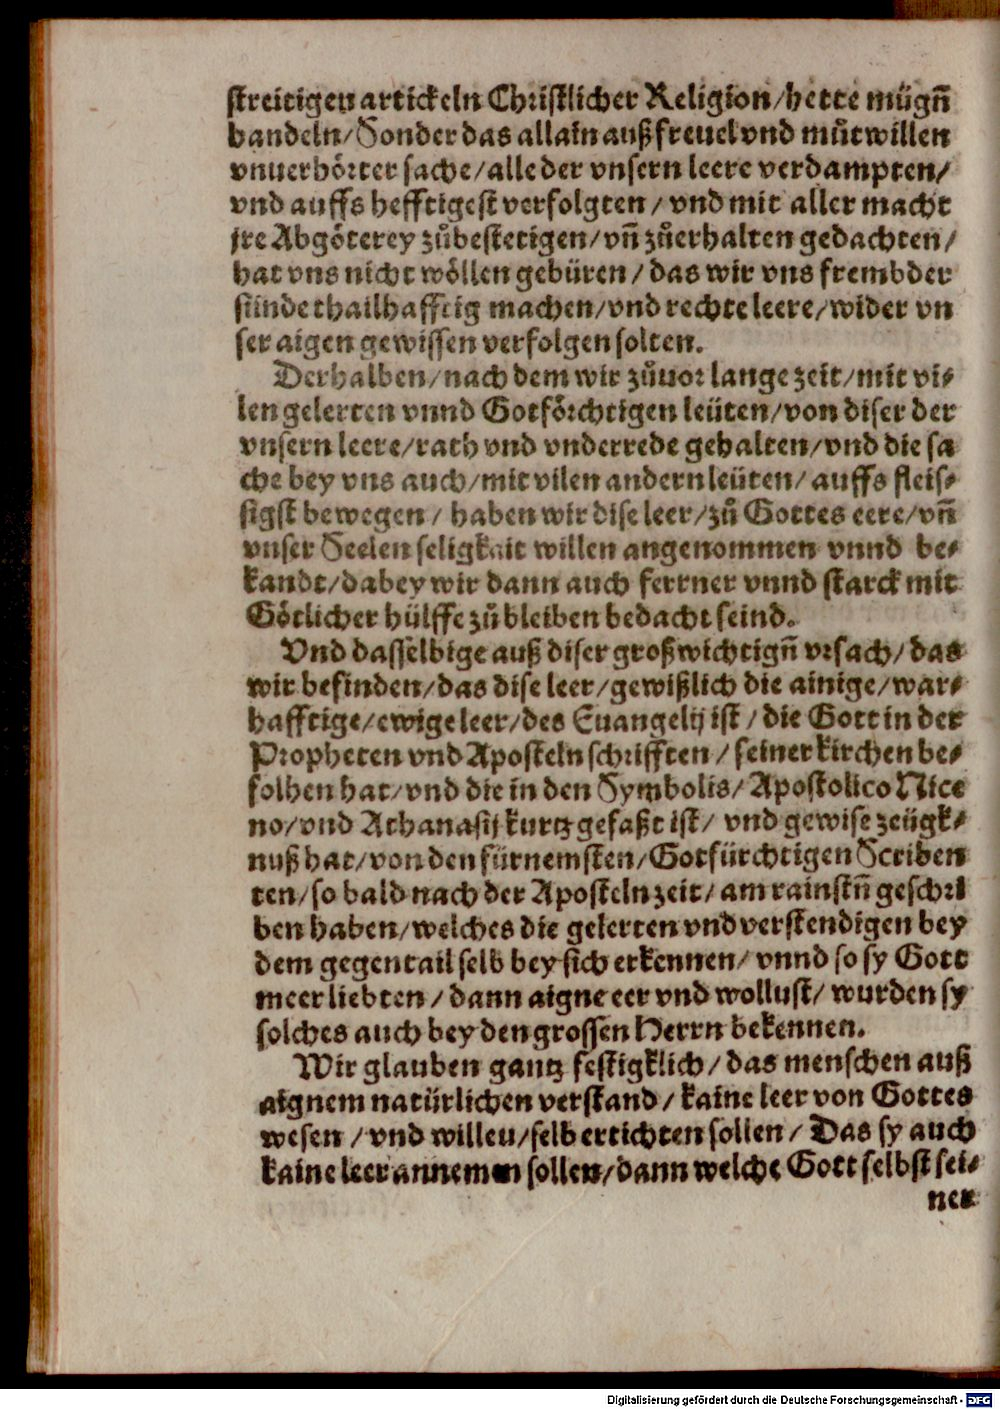 streitigen artickeln Christlicher Religion/hette mügn̄
handeln/Sonder das allain auß freuel vnd můtwillen
vnuerhörter sache/alle der vnsern leere verdampten/
vnd auffs hefftigest verfolgten/vnd mit aller macht
jre Abgöterey zůbestetigen/vn̄ zůerhalten gedachten/
hat vns nicht wöllen gebüren/das wir vns frembder
sünde thailhafftig machen/vnd rechte leere/wider vn
ser aigen gewissen verfolgen solten.
Derhalben/nach dem wir zůuor lange zeit/mit vi⸗
len gelerten vnnd Gotförchtigen leüten/von diser der
vnsern leere/rath vnd vnderrede gehalten/vnd die sa
che bey vns auch/mit vilen andern leüten/auffs fleis⸗
sigst bewegen/haben wir dise leer/zů Gottes eere/vn̄
vnser Seelen seligkait willen angenommen vnnd be⸗
kandt/dabey wir dann auch ferrner vnnd starck mit
Götlicher hülffe zů bleiben bedacht seind.
Vnd dasselbige auß diser groß wichtign̄ vrsach/das
wir befinden/das dise leer/gewißlich die ainige/war⸗
hafftige/ewige leer/des Euangelij ist/die Gott in der
Propheten vnd Aposteln schrifften/seiner kirchen be⸗
folhen hat/vnd die in den Symbolis/Apostolico Nice
no/vnd Athanasij kurtz gefaßt ist/vnd gewise zeügk⸗
nuß hat/von den fürnemsten/Gotfürchtigen Scriben
ten/so bald nach der Aposteln zeit/am rainstn̄ geschri
ben haben/welches die gelerten vnd verstendigen bey
dem gegentail selb bey sich erkennen/vnnd so sy Gott
meer liebten/dann aigne eer vnd wollust/wurden sy
solches auch bey den grossen Herrn bekennen.
Wir glauben gantz festigklich/das menschen auß
aignem natürlichen verstand/kaine leer von Gottes
wesen/vnd willen/selb ertichten sollen/Das sy auch
kaine leer annemen sollen/dann welche Gott selbst sei⸗
ner
Digitalisierung gefördert durch die Deutsche Forschungsgemeinschaft - DFG